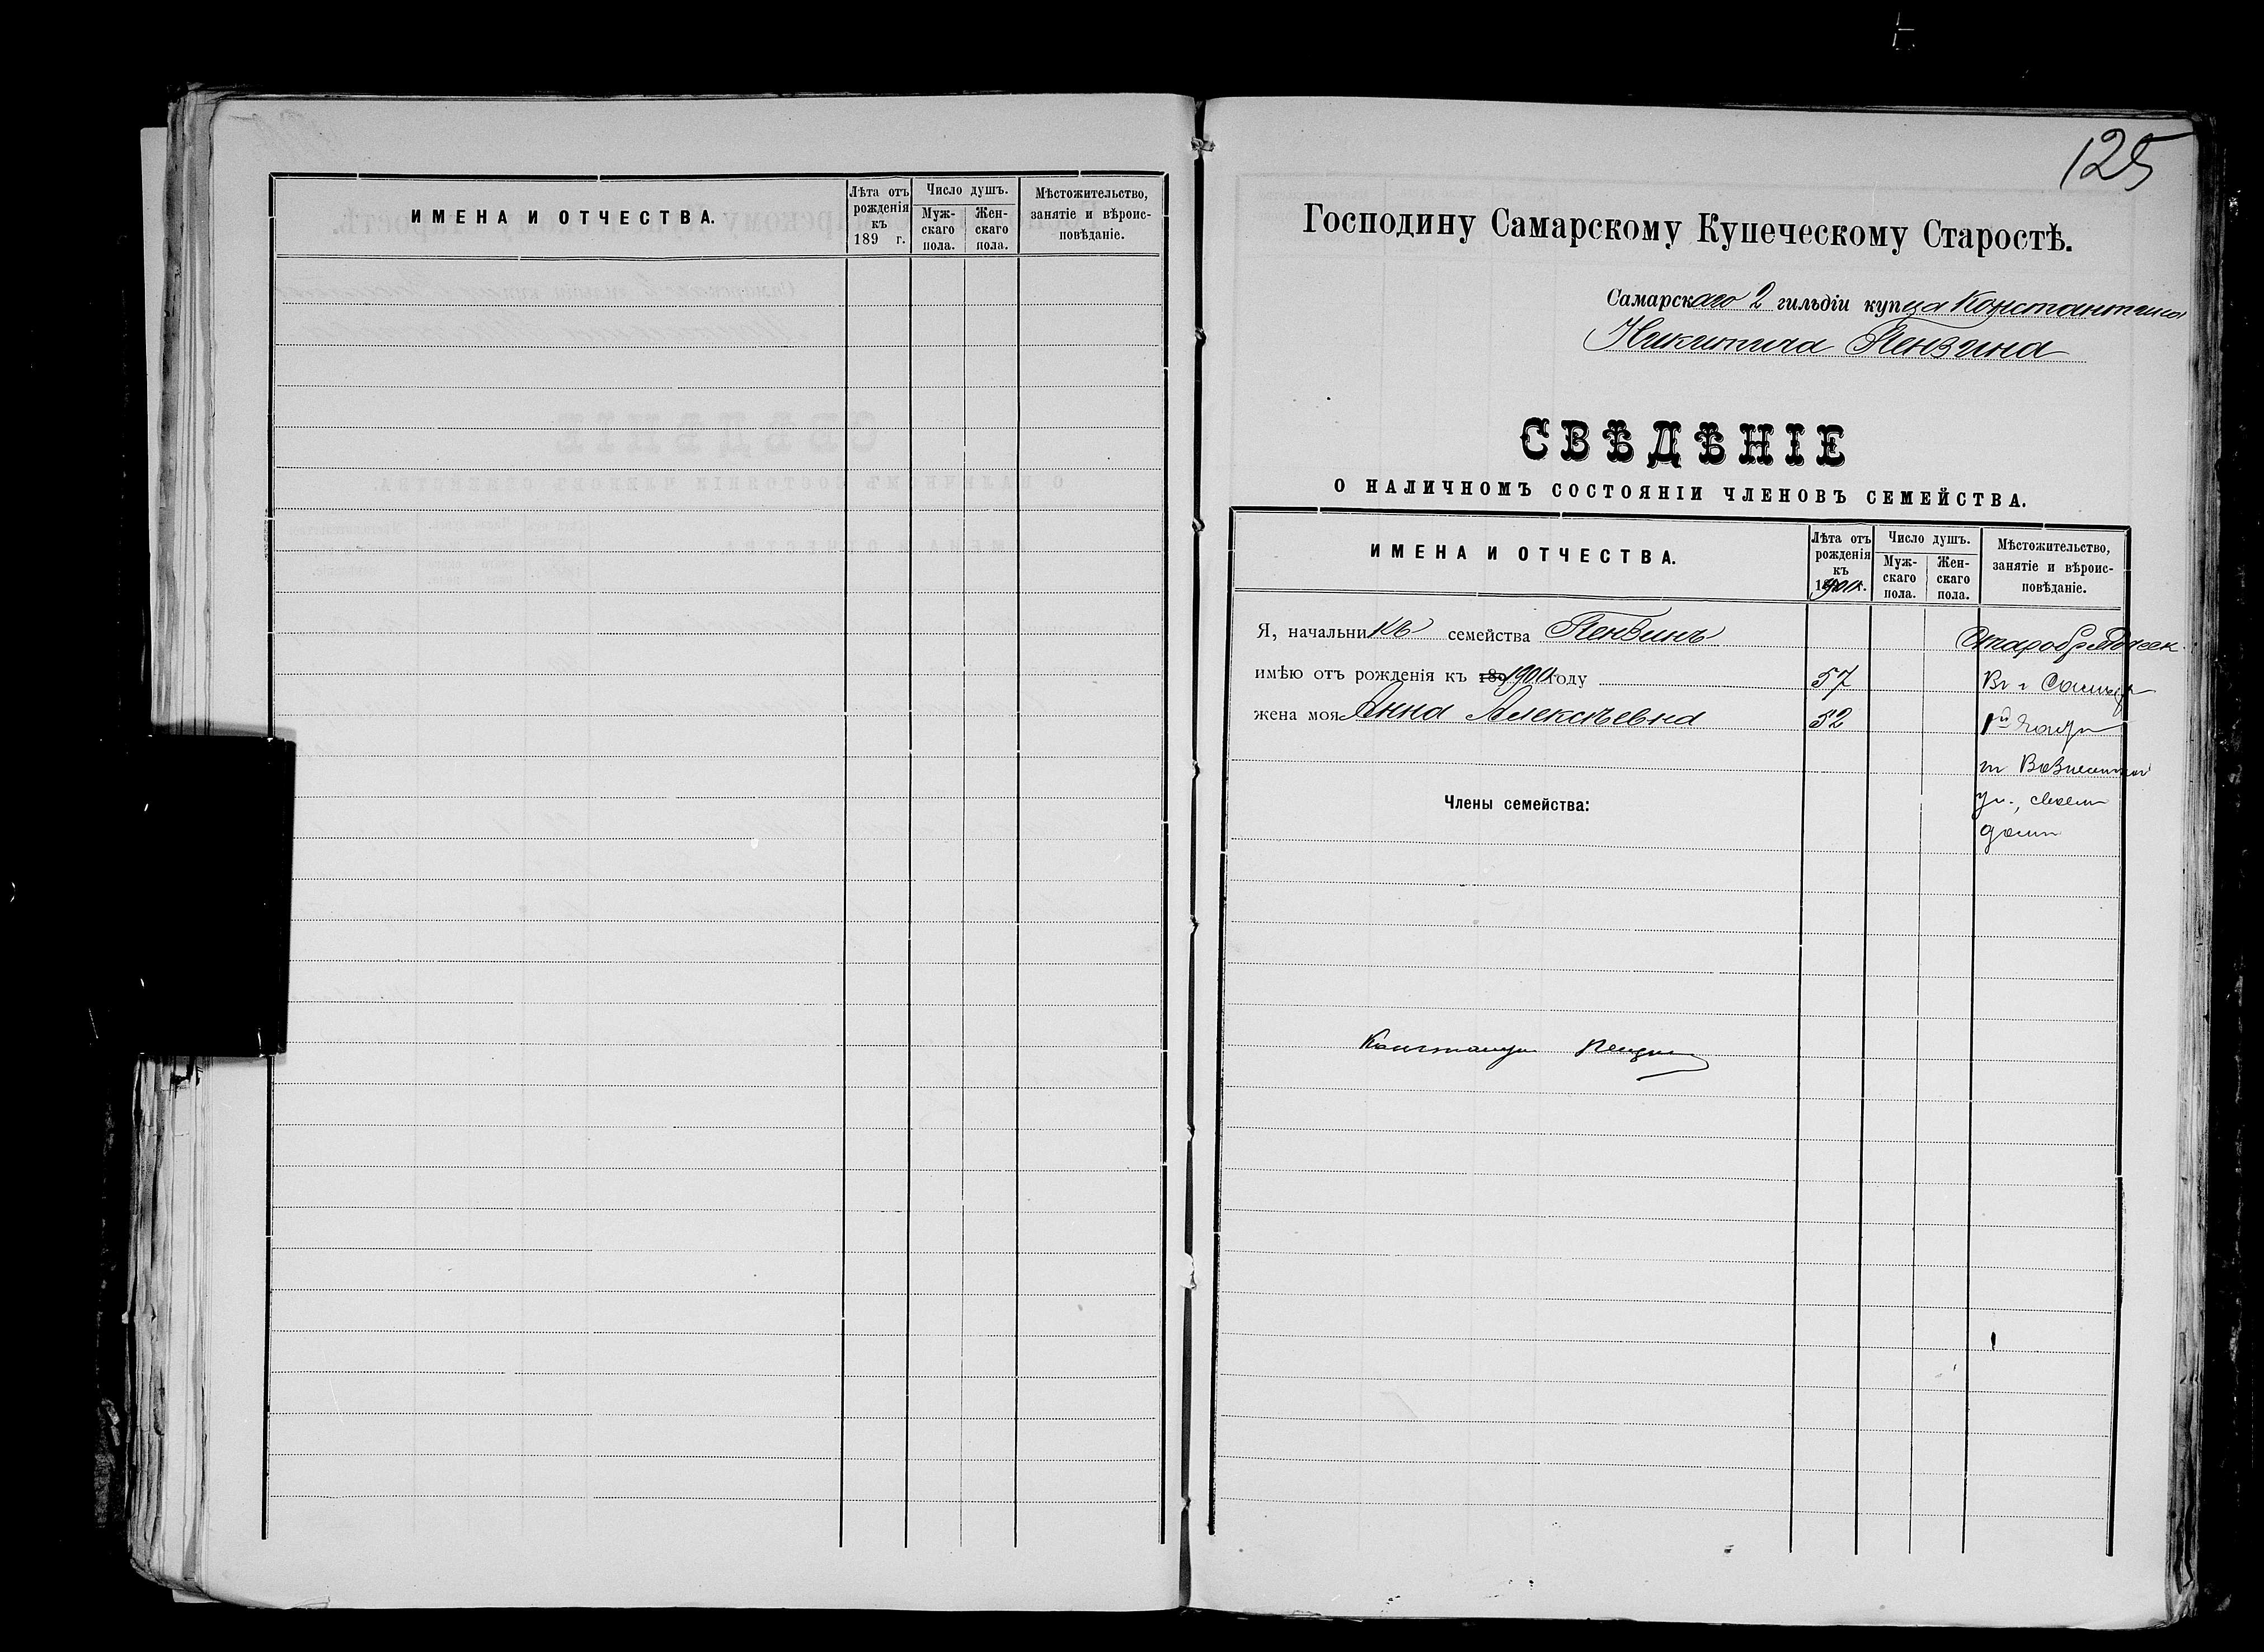 ИМЕНА И ОТЧЕСТВА.
Лѣта отъ рожденія къ 189 г.
Число душъ.
Мужскаго пола.
Женскаго пола.
Мѣстожительство, занятіе и вѣроисповѣданіе.
125
Господину Самарскому Купеческому Старостѣ.
Самарскаго 2 гильдіи купца Константина
Никитича Пензина
СВѢДѢНІЕ
О НАЛИЧНОМЪ СОСТОЯНІИ ЧЛЕНОВЪ СЕМЕЙСТВА.
ИМЕНА И ОТЧЕСТВА.
Лѣта отъ
рожденія
къ
1901 г.
Число душъ.
Муж-
скаго
пола.
Жен-
скаго
пола.
Мѣстожительство,
занятіе и вѣроис-
повѣданіе.
Я, начальникъ семейства Пензинъ
имѣю отъ рожденія къ 189 1901 году 57 Въ г Самарѣ
жена моя Анна Алексѣевна 52 1й части
по Вознесенской
Члены семейства: ул., своем
доме
Константин Пензин